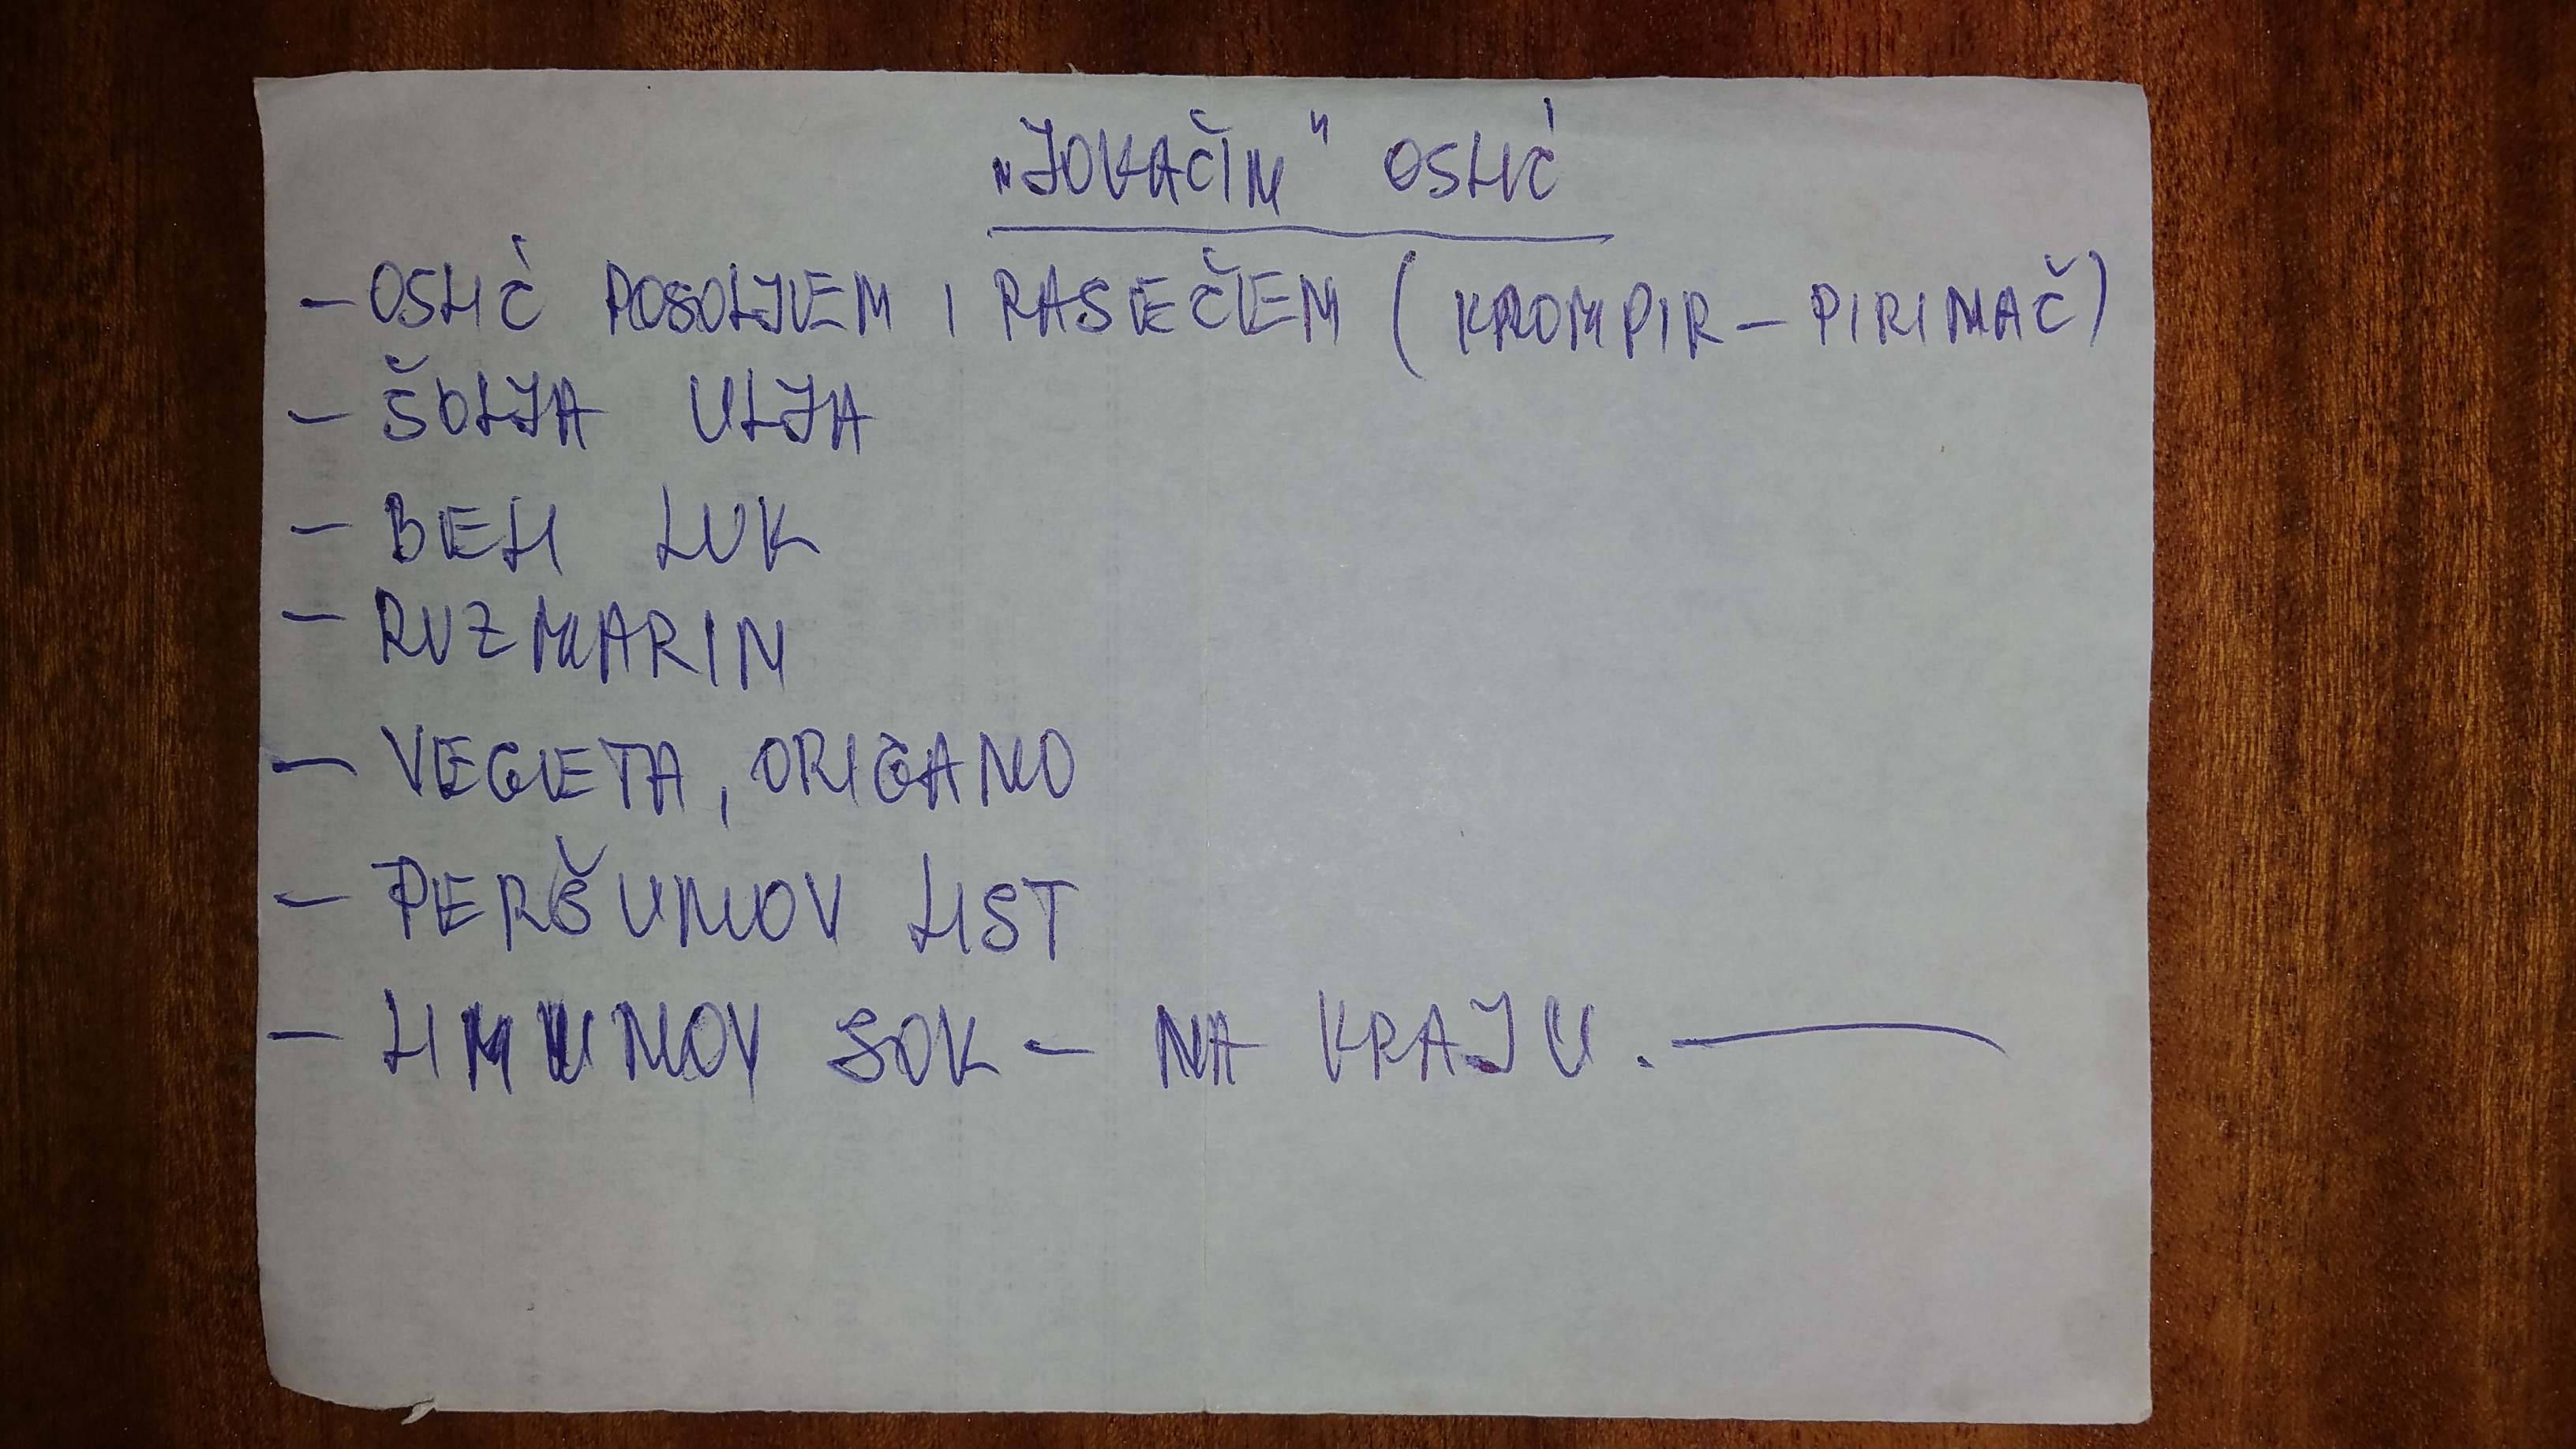 „JOVAČIN" OSLIĆ
- OSLIĆ POSOLJEM I RASEČEM (KROMPIR - PIRINAČ)
- ŠOLJA ULJA
- BELI LUK
- RUZMARIN
- VEGETA, ORIGANO
- PERŠUNOV LIST
- LIMUNOV SOK - NA KRAJU.